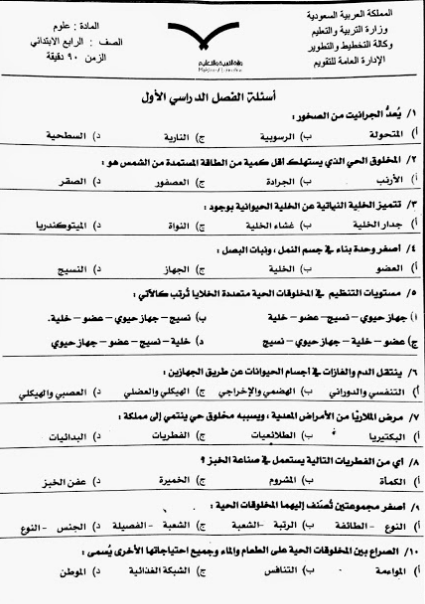 المملكة العربية السعودية
وزارة التربية والتعليم
وكالة التخطيط والتطوير
الإدارة العامة للتقويم
وزارة التربية والتعليم
المادة : علوم
الصف : الرابع الابتدائي
الزمن ٩٠ دقيقة
أسئلة الفصل الدراسي الأول
١/ يُعدُّ الجرانيت من الصخور :
أ) المتحولة ب) الرسوبية ج) النارية د) السطحية
٢/ المخلوق الحي الذي يستهلك أقل كمية من الطاقة المستمدة من الشمس هو :
أ) الأرنب ب) الجرادة ج) العصفور د) الصقر
٣/ تتميز الخلية النباتية عن الخلية الحيوانية بوجود :
أ) جدار الخلية ب) غشاء الخلية ج) النواة د) الميتوكندريا
٤/ أصغر وحدة بناء في جسم النمل ، ونبات البصل :
أ) العضو ب) الخلية ج) الجهاز د) النسيج
٥/ مستويات التنظيم في المخلوقات الحية متعددة الخلايا تُرتب كالآتي :
أ) جهاز حيوي – نسيج – عضو – خلية ب) نسيج – جهاز حيوي – عضو – خلية.
ج) عضو – خلية – جهاز حيوي – نسيج د) خلية – نسيج – عضو – جهاز حيوي
٦/ ينتقل الدم والغازات في اجسام الحيوانات عن طريق الجهازين :
أ) التنفسي والدوراني ب) الهضمي والإخراجي ج) الهيكلي والعضلي د) العصبي والهيكلي
٧/ مرض الملاريا من الأمراض المعدية ، ويسببه مخلوق حي ينتمي إلى مملكة :
أ) البكتيريا ب) الطلائعيات ج) الفطريات د) البدائيات
٨/ أي من الفطريات التالية يستعمل في صناعة الخبز ؟
أ) الكمأة ب) المشروم ج) الخميرة د) عفن الخبز
٩/ أصغر مجموعتين تُصنف إليهما المخلوقات الحية :
أ) النوع - الطائفة ب) الرتبة - الشعبة ج) الشعبة - الفصيلة د) الجنس - النوع
١٠/ الصراع بين المخلوقات الحية على الطعام والماء وجميع احتياجاتها الأخرى يُسمى :
أ) المواءمة ب) التنافس ج) الشبكة الغذائية د) الموطن